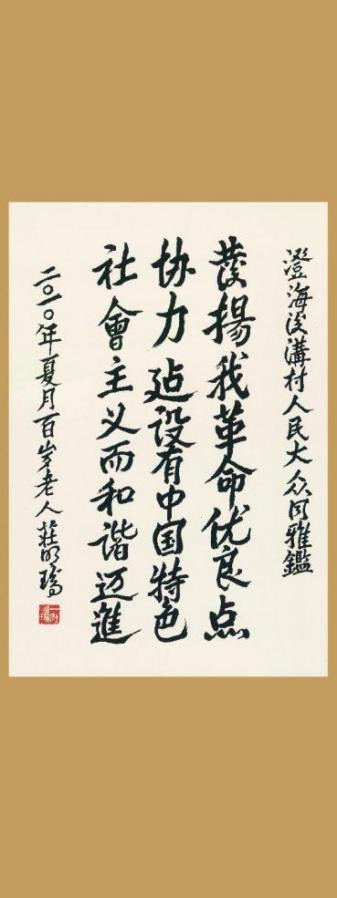 澄海後溝村人民大众同雅鑑
發揚我革命优良点
协力建设有中国特色
社會主义而和谐迈進
二〇一〇年夏月百岁老人莊明